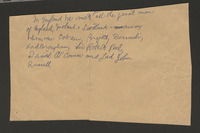 In England he met all the great men
of England, Ireland & Scotland - among
them were Cobden, Bright, Disraeli,
Lord Brougham, Sir Robert Peel,
Daniel O'Connell and Lord John
Russell